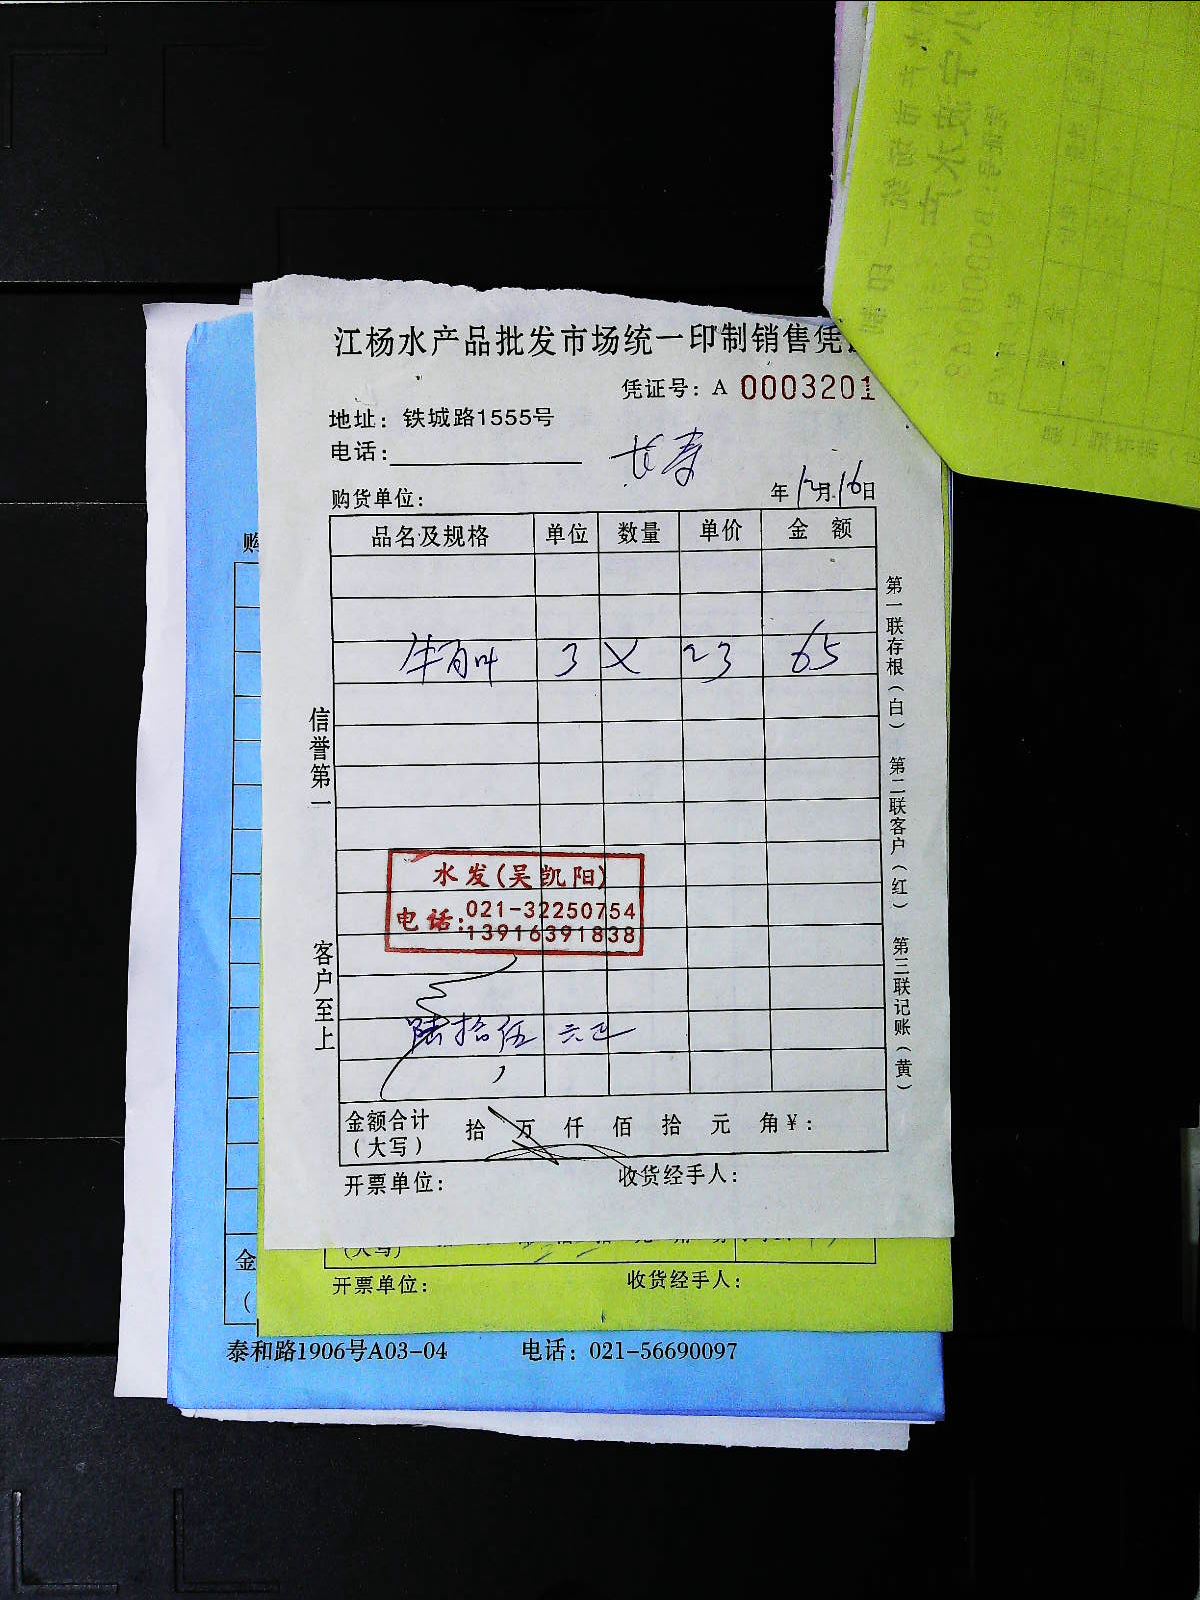 江杨水产品批发市场统一印制销售凭
凭证号：A 0003201
地址：铁城路1555号
电话：
长寿
购货单位：
年12月16日
品名及规格 单位 数量 单价 金 额
牛百叶 3 X 23 65
信誉第一
客户至上
水发(吴凯阳)
电话:021-32250754
13916391838
陆拾伍元正
金额合计（大写） 拾 万 仟 佰 拾 元 角 ¥：
开票单位： 收货经手人：
第一联存根（白） 第二联客户（红） 第三联记账（黄）
(大写)
开票单位： 收货经手人：
购
金
泰和路1906号A03-04 电话：021-56690097